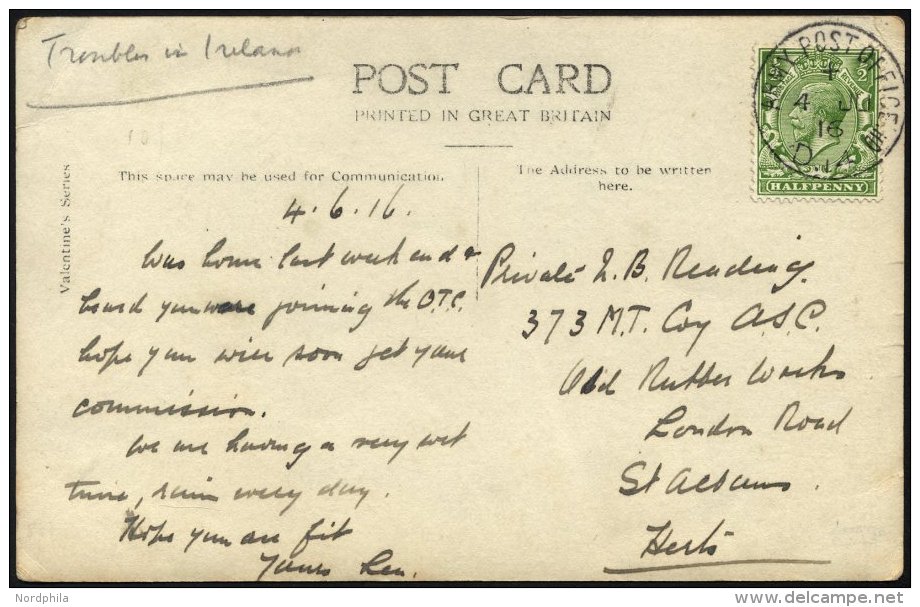 Troubles in Ireland
POST CARD
PRINTED IN GREAT BRITAIN
Valentine's Series
This space may be used for Communication.
The Address to be written
here.
ARMY POST OFFICE
4 JU
16
HALFPENNY
4.6.16.
Was home last week end &
heard you were joining the O.T.C.
hope you will soon get your
commission.
We are having a very wet
time, rain every day.
Hope you are fit
Yours Len.
Private B. Reading.
373 M.T. Coy A.S.C.
Old Rubber Works
London Road
St Albans.
Herts
Nordphila
delcampe.net